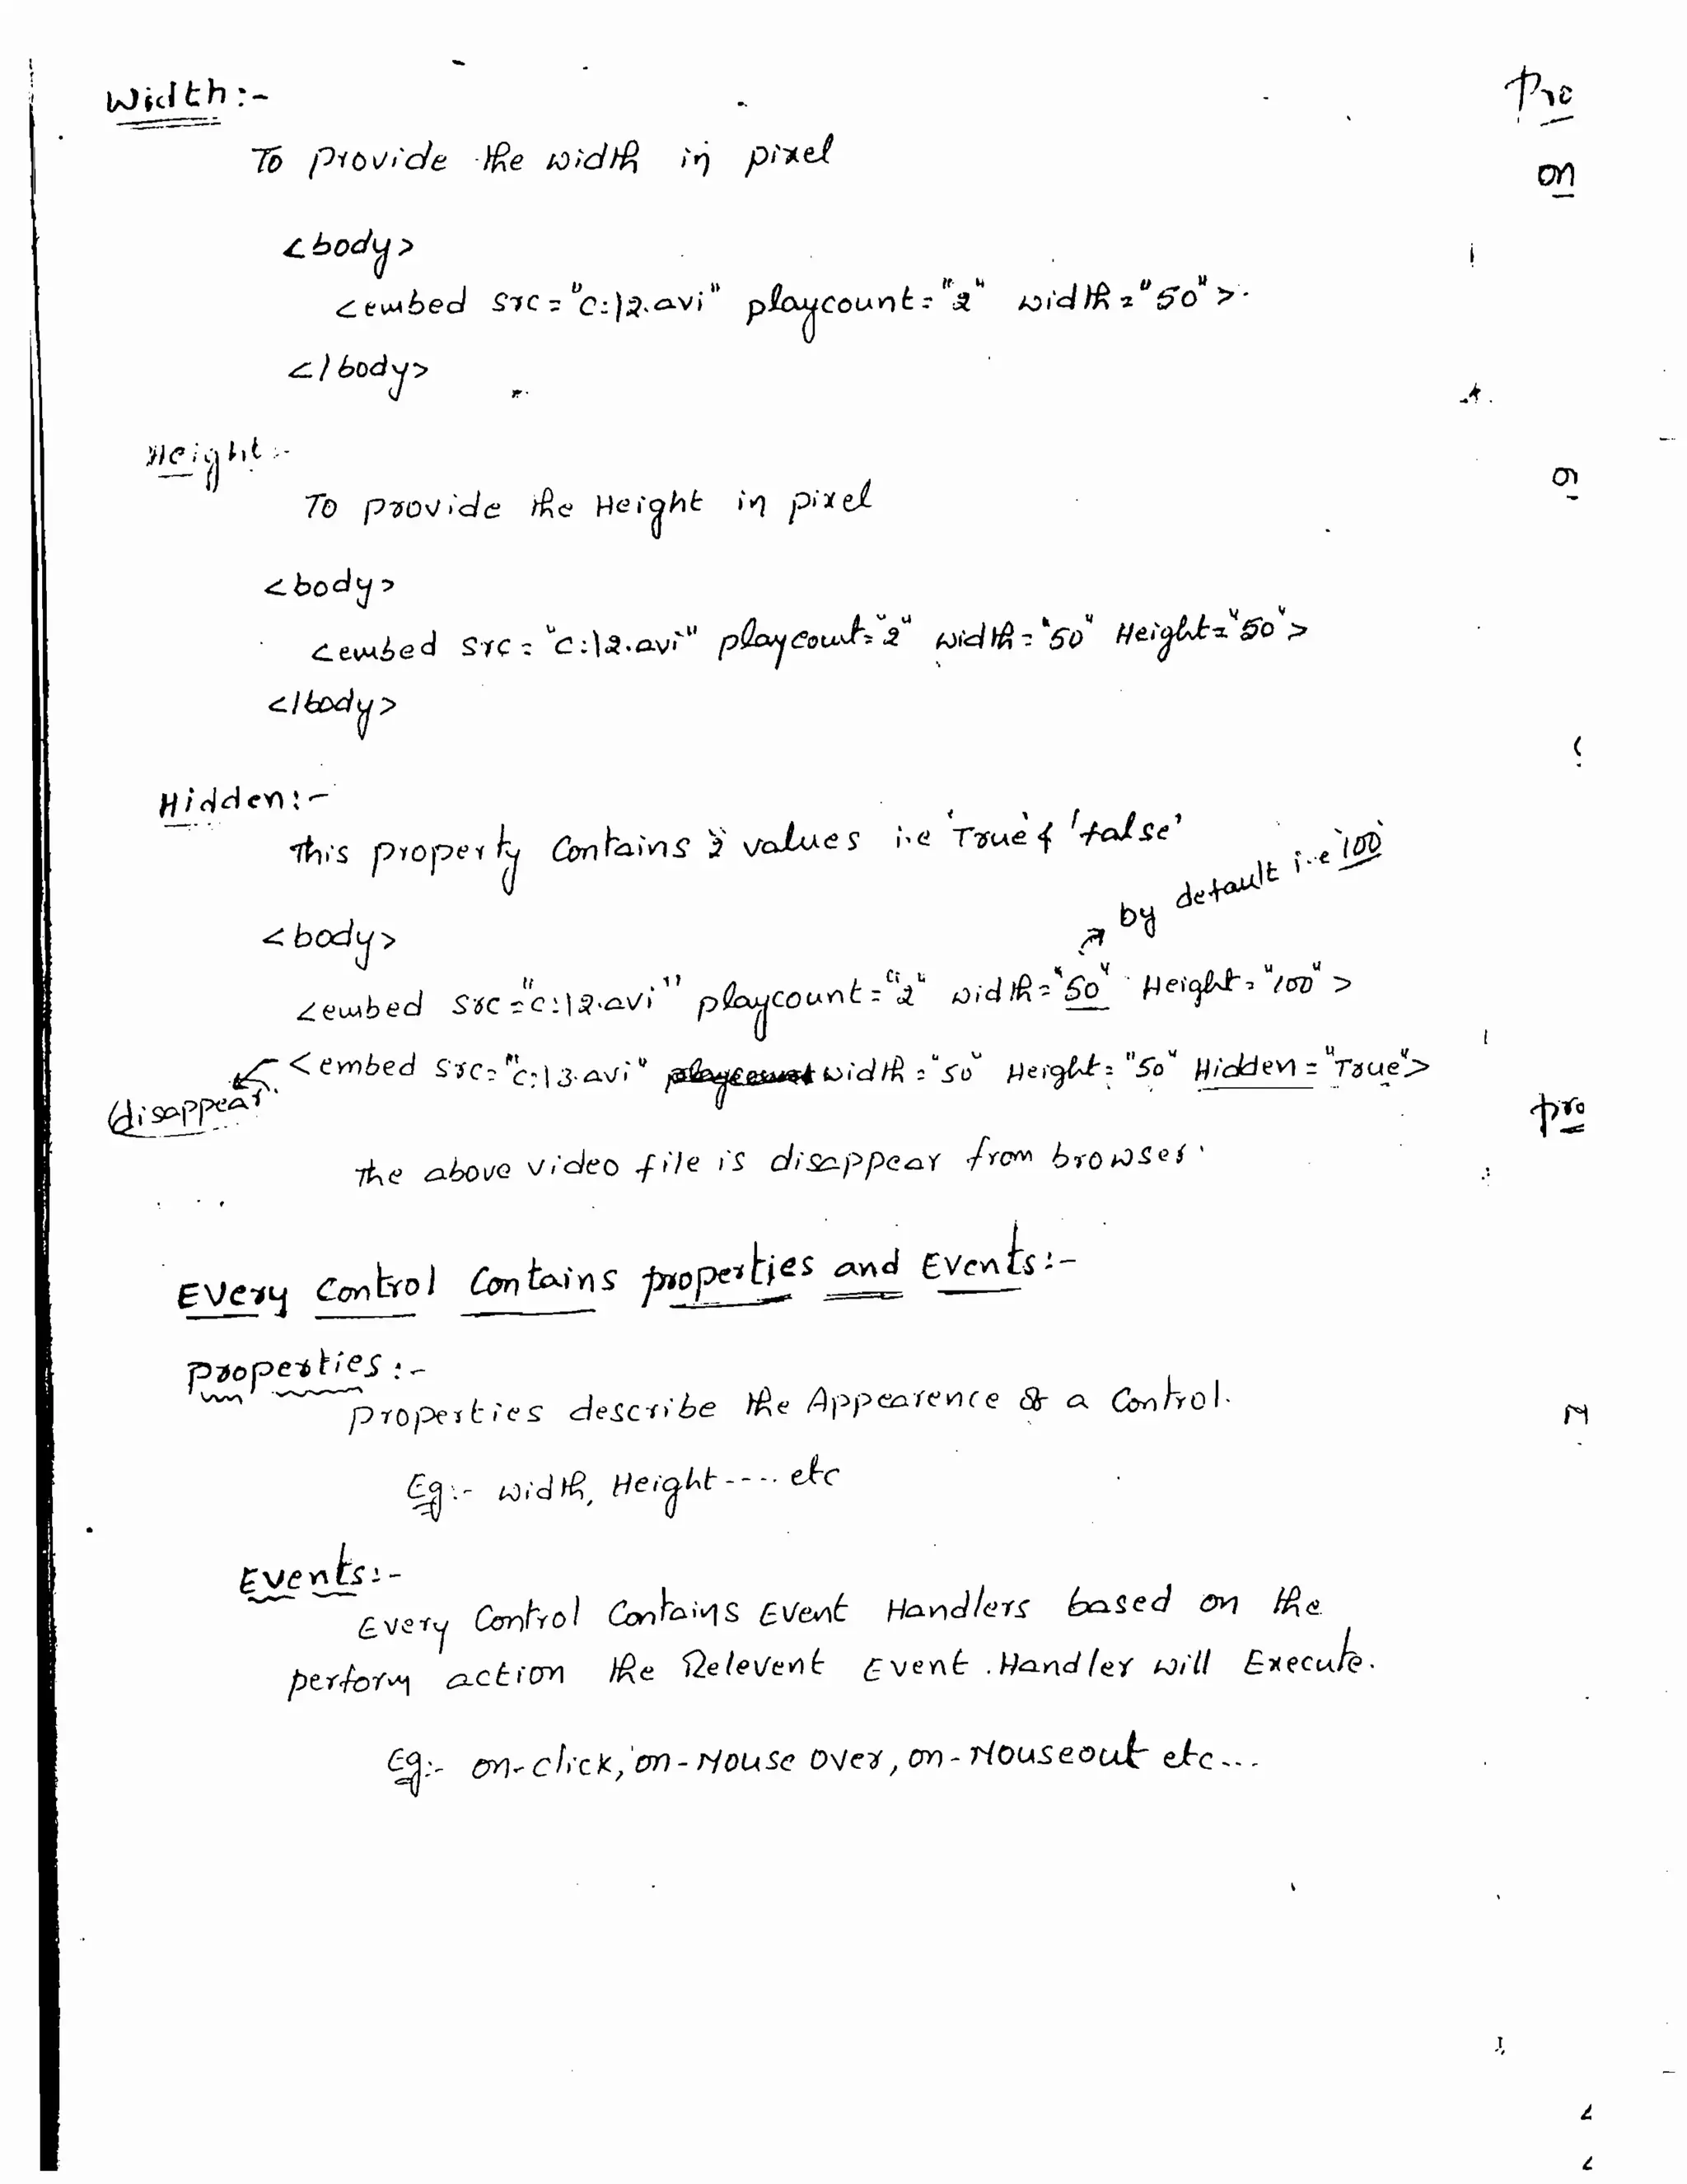 Width:-
To provide the width in pixel
<body>
<embed src="c:\2.avi" playcount="2" width="50">
</body>
Height:-
To provide the Height in pixel
<body>
<embed src="c:\2.avi" playcount="2" width="50" Height="50">
</body>
Hidden:-
This property Contains 2 values i.e 'True' & 'false'
by default i.e '100'
<body>
<embed src="c:\2.avi" playcount="2" width="50" Height="100">
<embed src="c:\3.avi" width="50" Height="50" Hidden="True">
disappear.
The above video file is disappear from browser.
Every Control Contains properties and Events:-
Properties:-
Properties describe the Appearence of a Control.
Eg:- width, Height---- etc
Events:-
Every Control Contains Event Handlers based on the
perform action the Relevent Event Handler will Execute.
Eg:- on-click, on-Mouse over, on-Mouseout etc...
Pro
on
pro